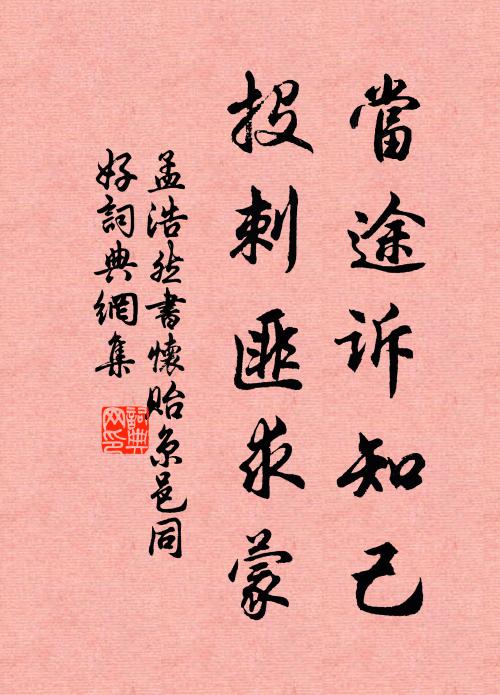 當途訴知己
投刺匪求蒙
孟浩然書懷貽京邑同
好詞典網集
詞典
网印